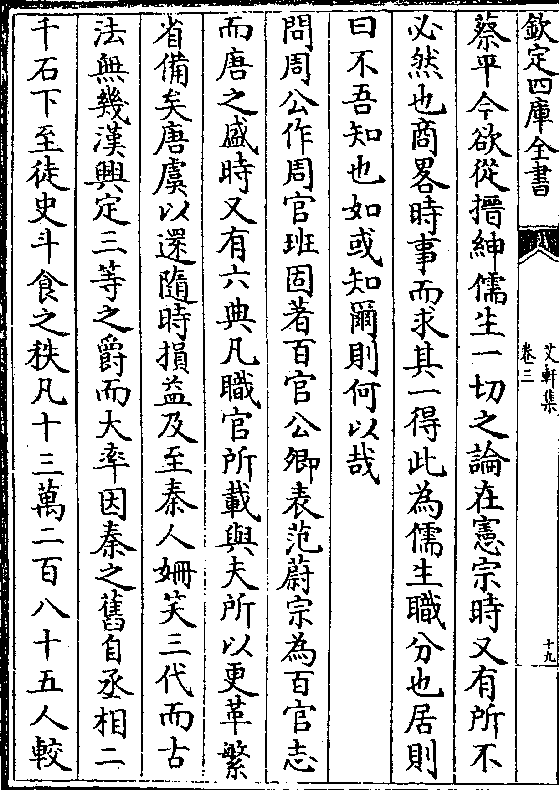 欽定四庫全書
艾軒集
卷三
十九
蔡平今欲從搢紳儒生一切之論在憲宗時又有所不
必然也商畧時事而求其一得此為儒生職分也居則
曰不吾知也如或知爾則何以哉
問周公作周官班固著百官公卿表范蔚宗為百官志
而唐之盛時又有六典凡職官所載與夫所以更革繁
省備矣唐虞以還隨時損益及至秦人姍笑三代而古
法無幾漢興定三等之爵而大率因秦之舊自丞相二
千石下至徒史斗食之秩凡十三萬二百八十五人較